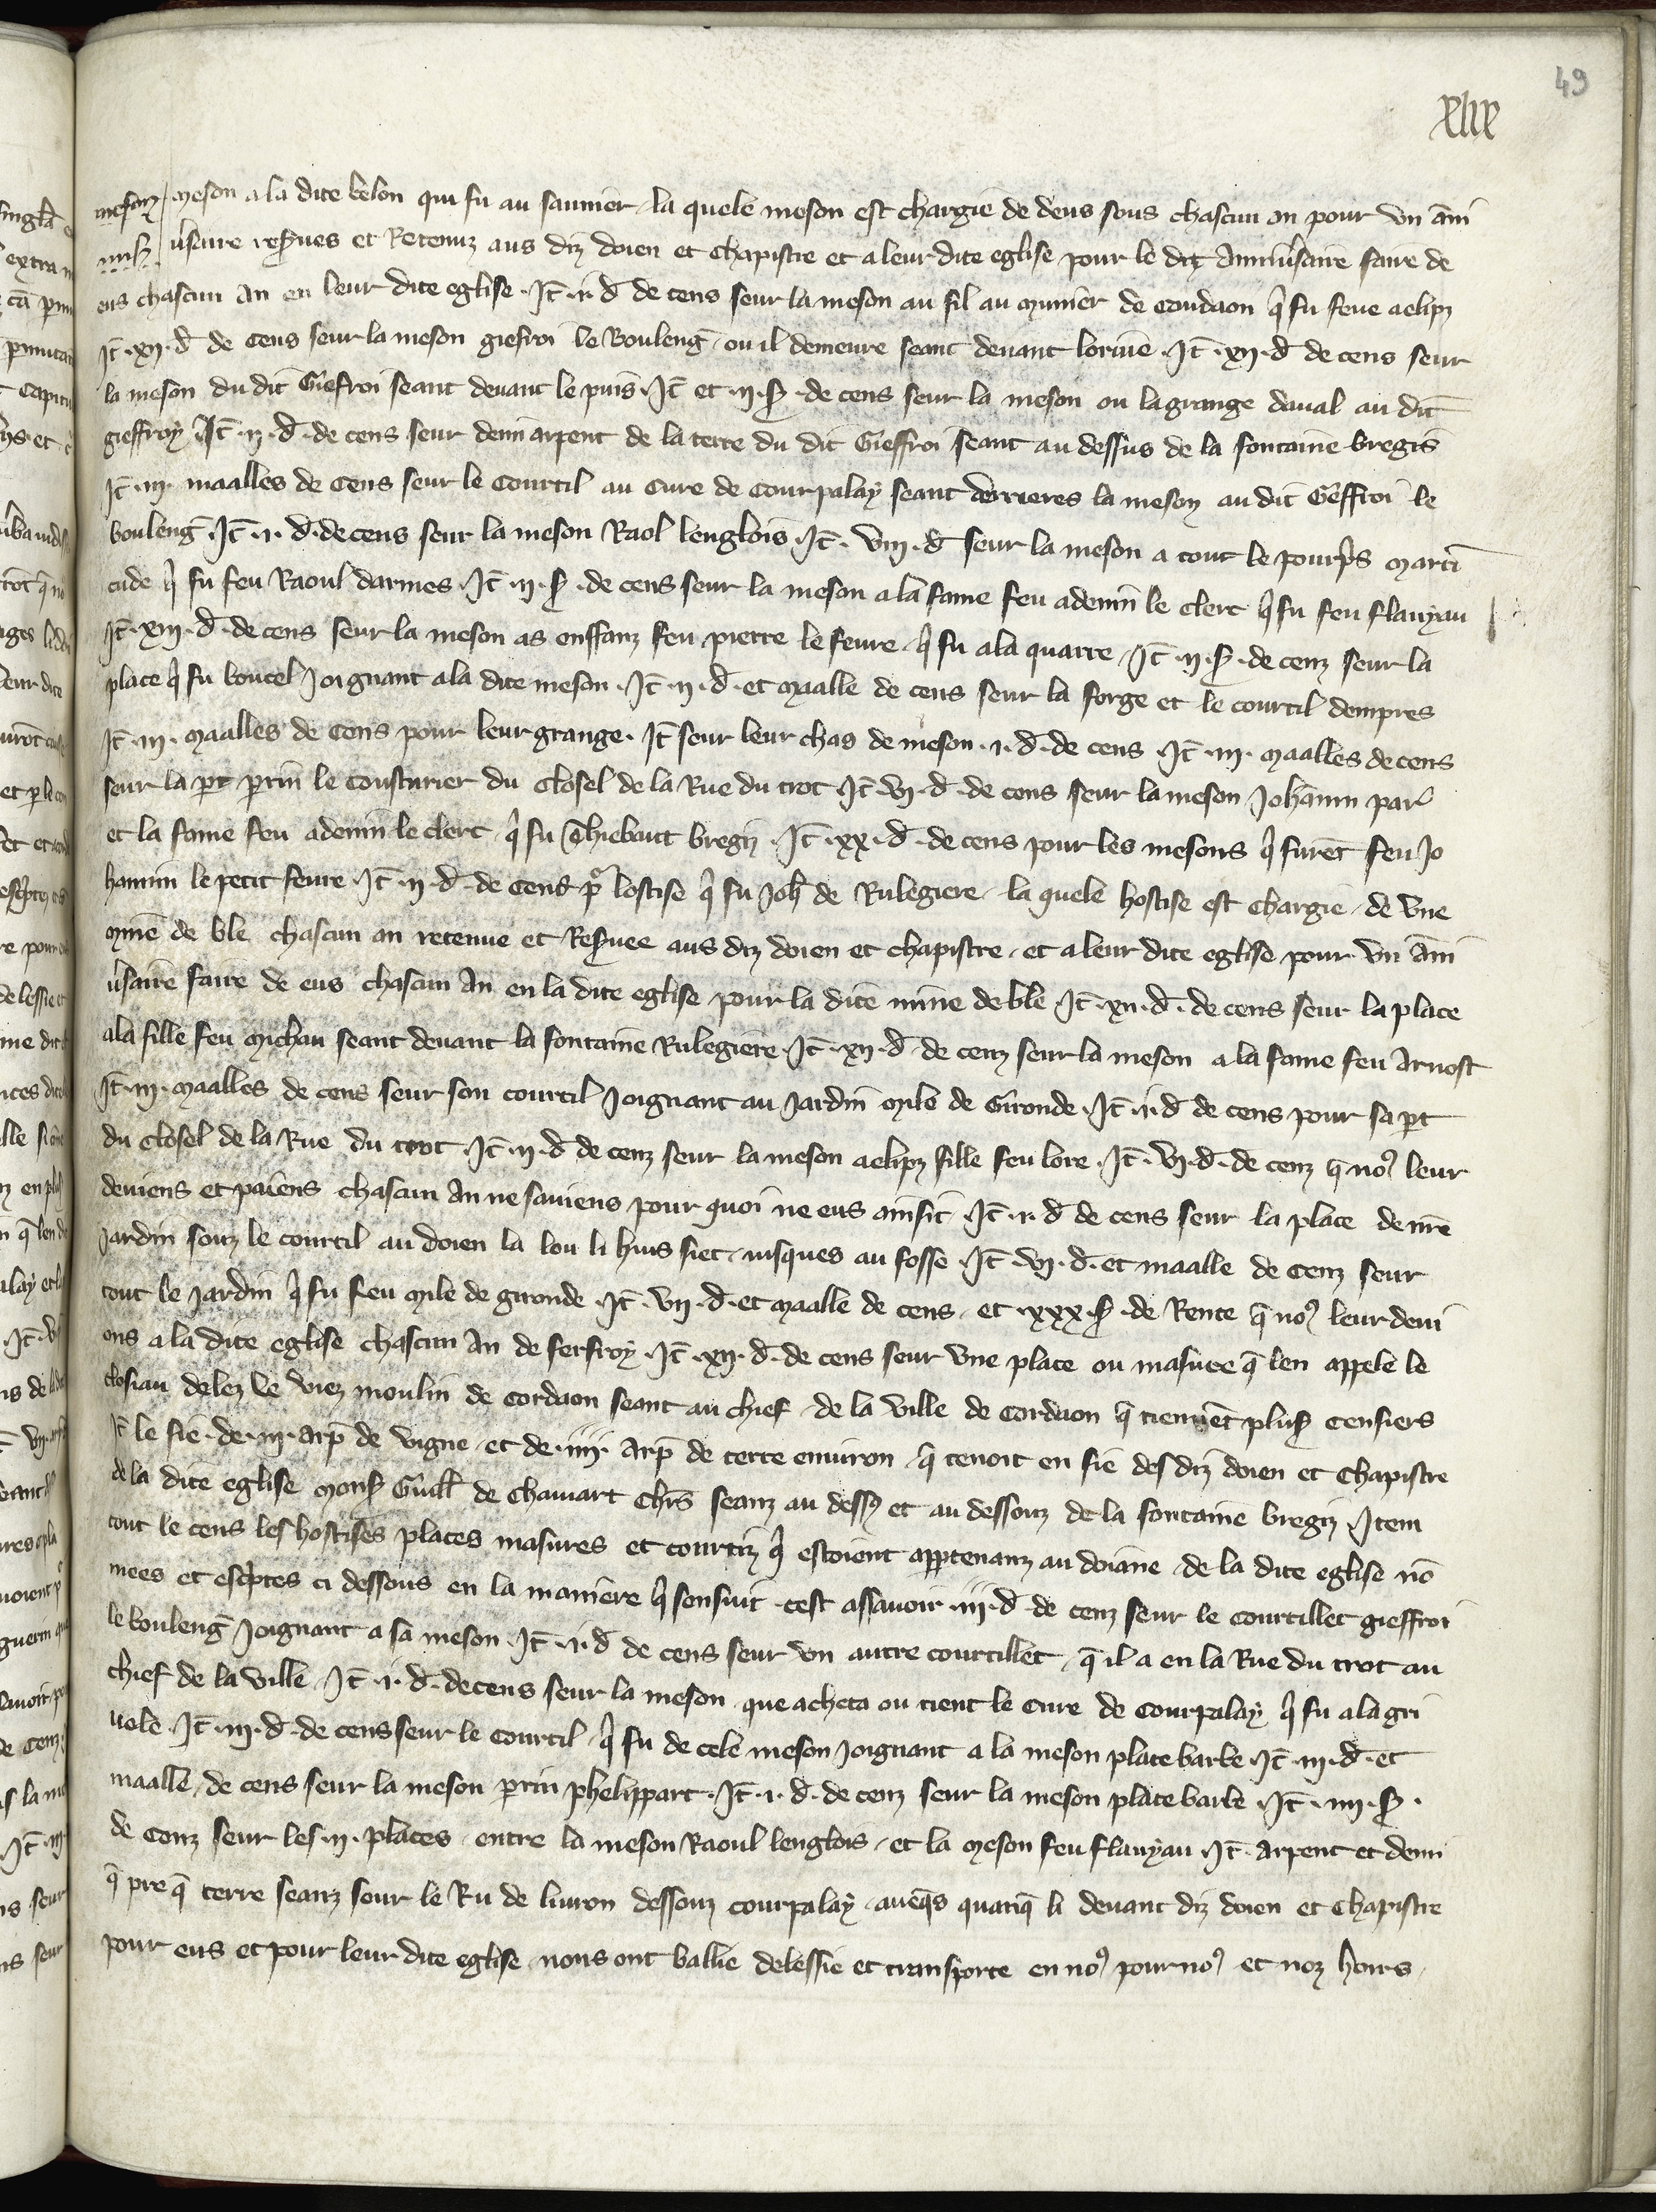 49
xlix
mesonz meson a la dite belon qui fu au saunier la quele meson est chargie de deus sous chascun an pour vn āni
ūsaire res̄ues et Retenuz aus diz doien et chapistre et a leur dite eglise pour le dit Anniūsaire faire de
eus chascun An en leur dite eglise . Jt̄ . ii . d̄ de cens seur la meson au fil au munier de Coudaon q̄ fu feue aelipz
Jt̄ . xii . d̄ de cens seur la meson giefroi le Boulenḡ ou il demeure seant deuant lorme . Jt̄ . xii . d̄ de cens seur
la meson du dit Giefroi seant deuant le puis . Jt̄ et . ii . s̄ . de cens seur la meson ou la grange daual au dit
gieffroy Jt̄ . ii . d̄ . de cens seur demi arpent de la terre du dit Gieffroi seant au dessus de la fontaine bregis
Jt̄ . iii . maalles de cens seur le Courtil au Cure de Courpalay seant derrieres la meson au dit Gieffroi le
boulenḡ . Jt̄ . i . d̄ . de cens seur la meson Raol lenglois . Jt̄ . viii . d̄ seur la meson a tout le pourp̄s marti
cude q̄ fu feu Raoul darmes . Jt̄ . ii . s̄ . de cens seur la meson a la fame feu ademin le clerc q̄ fu feu flauyau
Jt̄ . xiii . d̄ . de cens seur la meson as enffanz feu pierre le feure q̄ fu a la quarre Jt̄ . ii . s̄ . de cenz seur la
place q̄ fu boucel Joignant a la dite meson . Jt̄ . ii . d̄ . et maalle de cens seur la forge et le courtil dempres
Jt̄ . iii . maalles de Cens pour leur grange . Jt̄ seur leur chas de meson . i . d̄ . de cens . Jt̄ . iii . maalles de cens
seur la p̄t p̄rin le Cousturier du Closel de la Rue du trot Jt̄ . vi . d̄ . de cens seur la meson Johānin par
et la fame feu ademin le clerc q̄ fu Thiebaut bregiz . Jt̄ . xx . d̄ . de cens pour les mesons q̄ furēt feu Jo
hannin le petit feure . Jt̄ . ii . d̄ . de Cens p̄ lostise q̄ fu Joh̄ de Rulegiere la quele hostise est Chargie de vne
mine de ble chascun an retenue et Res̄uee aus diz doien et chapistre et a leur dite eglise pour vn āni
ūsaire faire de eus chascun An en la dite eglise pour la dite mine de ble . Jt̄ . xii . d̄ . de cens seur la place
a la fille feu michau seant deuant la fontaine Rulegiere . Jt̄ . xii . d̄ de cenz seur la meson a la fame feu Arnost
Jt̄ . iii . maalles de cens seur son courtil Joignant au Jardin mile de Gironde . Jt̄ . ii . d̄ de cens pour sa p̄t
du Closel de la Rue du trot . Jt̄ . ii . d̄ de cenz seur la meson aelipz fille feu lore . Jt̄ . vi . d̄ . de cenz q̄ no9 leur
deuiens et paiens chascun An ne sauiens pour quoi ne eus ainsit . Jt̄ . ii . d̄ de cens seur la place de nr̄e
Jardin souz le courtil au doien la lou li huis siet iusques au fosse . Jt̄ . vi . d̄ . et maalle de Cenz seur
tout le Jardin q̄ fu feu mile de gironde . Jt̄ . vii . d̄ . et maalle de cens et . xxx . s̄ . de Rente q̄ no9 leur deui
ons a la dite eglise chascun An de ferfroy . Jt̄ . xii . d̄ . de cens seur vne place ou masure q̄ len appele le
closiau delez le viez moulin de Cordaon seant au chief de la ville de Cordaon q̄ tiennēt plus̄ Censiers
Jt̄ le fie . de . iii . arp̄ de vigne et de . iiii . Arp̄ de terre enuiron q̄ tenoit en fie des diz doien et Chapistre
de la dite eglise mons̄ Guill̄ de Chauart Chr̄s seanz au dess9 et au dessouz de la fontaine bregiz Jtem
tout le cens les hostises places masures et courtiz q̄ estoient app̄tenanz au doiane de la dite eglise nō
mees et esc̄ptes ci dessous en la maniere q̄ sensuit cest assauoir . iii . d̄ . de cenz seur le Courtillet gieffroi
le boulenḡ Joignant a sa meson . Jt̄ . ii . d̄ de cens seur vn autre courtillet q̄ il a en la Rue du trot au
chief de la ville . Jt̄ . i . d̄ . de cens seur la meson que acheta ou tient le Cure de Courpalay q̄ fu a la gri
uele . Jt̄ . iii . d̄ . de cens seur le Courtil q̄ fu de cele meson Joignant a la meson platebarbe . Jt̄ . iii . d̄ . et
maalle de cens seur la meson p̄rin phelippart . Jt̄ . i . d̄ . de cenz seur la meson platebarbe . Jt̄ . iiii . s̄ .
de Cenz seur les . ii . places entre la meson Raoul lenglois et la meson feu flauyau Jt̄ . arpent et demi
q̄ pre q̄ terre seanz seur le Ru de liuron dessouz courpalay auec̄s quanq̄ li deuant diz doien et Chapistre
pour eus et pour leur dite eglise nous ont ballie delessie et transporte en no9 pour no9 et noz hoirs